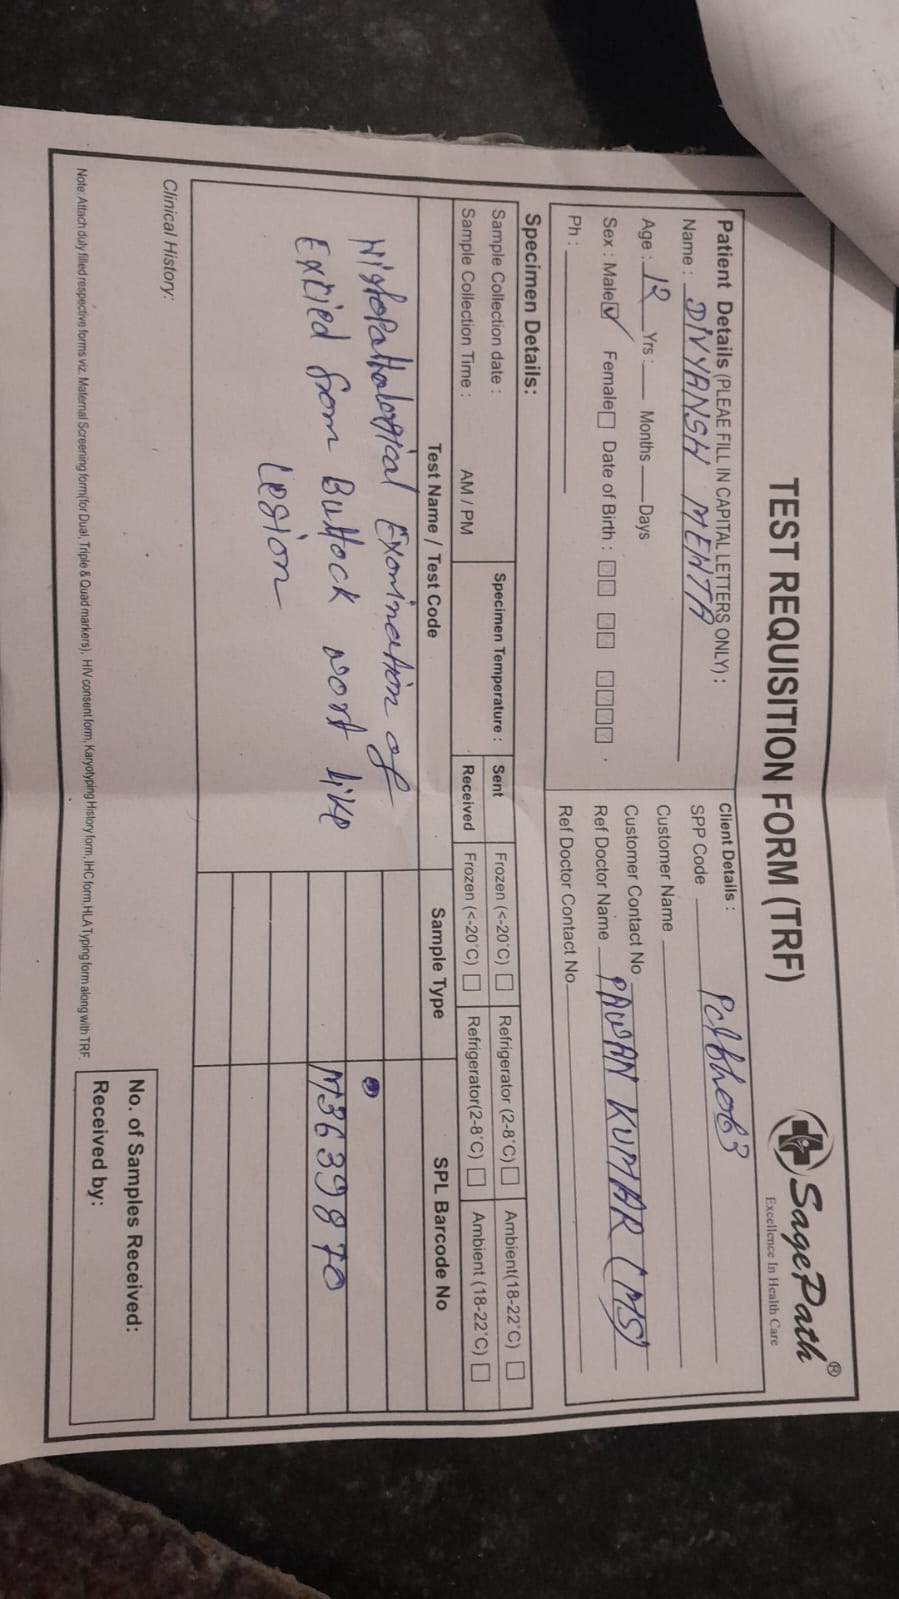 TEST REQUISITION FORM (TRF)
SagePath®
Excellence In Health Care
Patient Details (PLEAE FILL IN CAPITAL LETTERS ONLY) :
Name : DIVYANSH MEHTA
Age : 12 Yrs : Months Days
Sex : Male ☑ Female ☐ Date of Birth :
Ph :
Client Details :
SPP Code
Customer Name
Customer Contact No
Ref Doctor Name PAWAN KUMAR (MS)
Ref Doctor Contact No
Specimen Details:
Sample Collection date :
Sample Collection Time : AM / PM
Specimen Temperature :
Sent Frozen (<-20˚C) ☐ Refrigerator (2-8˚C) ☐ Ambient(18-22˚C) ☐
Received Frozen (<-20˚C) ☐ Refrigerator(2-8˚C) ☐ Ambient (18-22˚C) ☐
Test Name / Test Code Sample Type SPL Barcode No
Histopathological Examination of
Excied from Buttock wort like M3639870
Lesion
Clinical History:
No. of Samples Received:
Received by:
Note: Attach duly filled respective forms viz. Maternal Screening form(for Dual, Triple & Quad markers), HIV consent form, Karyotyping History form, IHC form, HLA Typing form along with TRF.